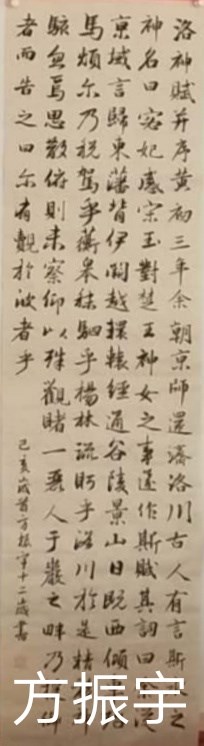 洛神賦并序黃初三年余朝京師還濟洛川古人有言斯水之
神名曰宓妃感宋玉對楚王神女之事遂作斯賦其詞曰余從
京域言歸東藩背伊闕越轘轅經通谷陵景山日既西傾車
馬煩尔乃税駕乎蘅皋秣駟乎楊林流眄乎洛川於是精移
駭忽焉思散俯則未察仰以殊觀睹一麗人于巖之畔乃援御
者而告之曰尔有覿於彼者乎
己亥歲首方振宇十二歲書
方振宇